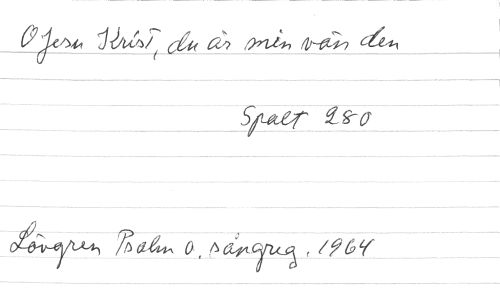 O Jesu Krist, du är min vän den
Spalt 280
Lövgren Psalm o. sångreg. 1964